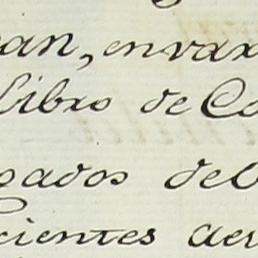 an, en vax
Libro de Co
sados de
cientes de